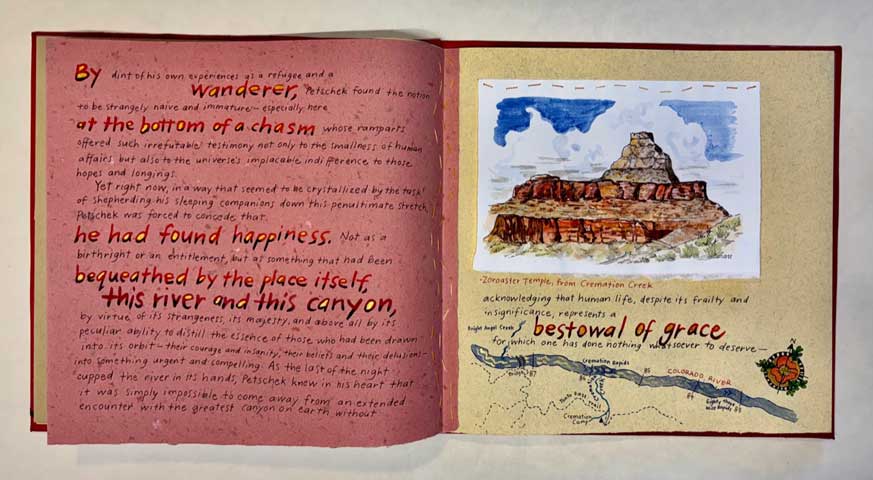 By dint of his own experiences as a refugee and a
wanderer, Petschek found the notion
to be strangely naive and immature—especially here
at the bottom of a chasm whose ramparts
offered such irrefutable testimony not only to the smallness of human
affairs, but also to the universe's implacable indifference to those
hopes and longings.
Yet right now, in a way that seemed to be crystallized by the task
of shepherding his sleeping companions down this penultimate stretch,
Petschek was forced to concede that
he had found happiness. Not as a
birthright or an entitlement, but as something that had been
bequeathed by the place itself,
this river and this canyon,
by virtue of its strangeness, its majesty, and above all by its
peculiar ability to distill the essence of those who had been drawn
into its orbit—their courage and insanity, their beliefs and their delusions—
into something urgent and compelling. As the last of the night
cupped the river in its hands, Petschek knew in his heart that
it was simply impossible to come away from an extended
encounter with the greatest canyon on earth without
Zoroaster Temple, from Cremation Creek
acknowledging that human life, despite its frailty and
insignificance, represents a
Bright Angel Creek
bestowal of grace
for which one has done nothing whatsoever to deserve—
N
Cremation Rapids
COLORADO RIVER
87
85
84
Eighty Three
Mile Rapids
Tonto East
Trail
Cremation
Camp